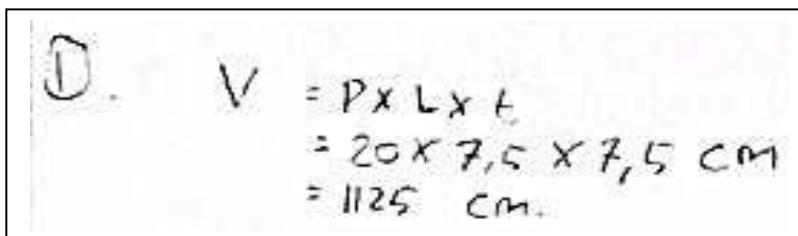 D. V = P x L x t
= 20 x 7,5 x 7,5 cm
= 1125 cm.